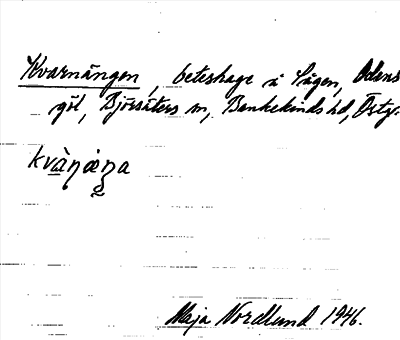 Kvarnängen, beteshage å Sågen, Odens
göl, Björsäters sn, Bankekinds hd, Östg.
kvàṇǽŋa
Maja Nordlund 1946.